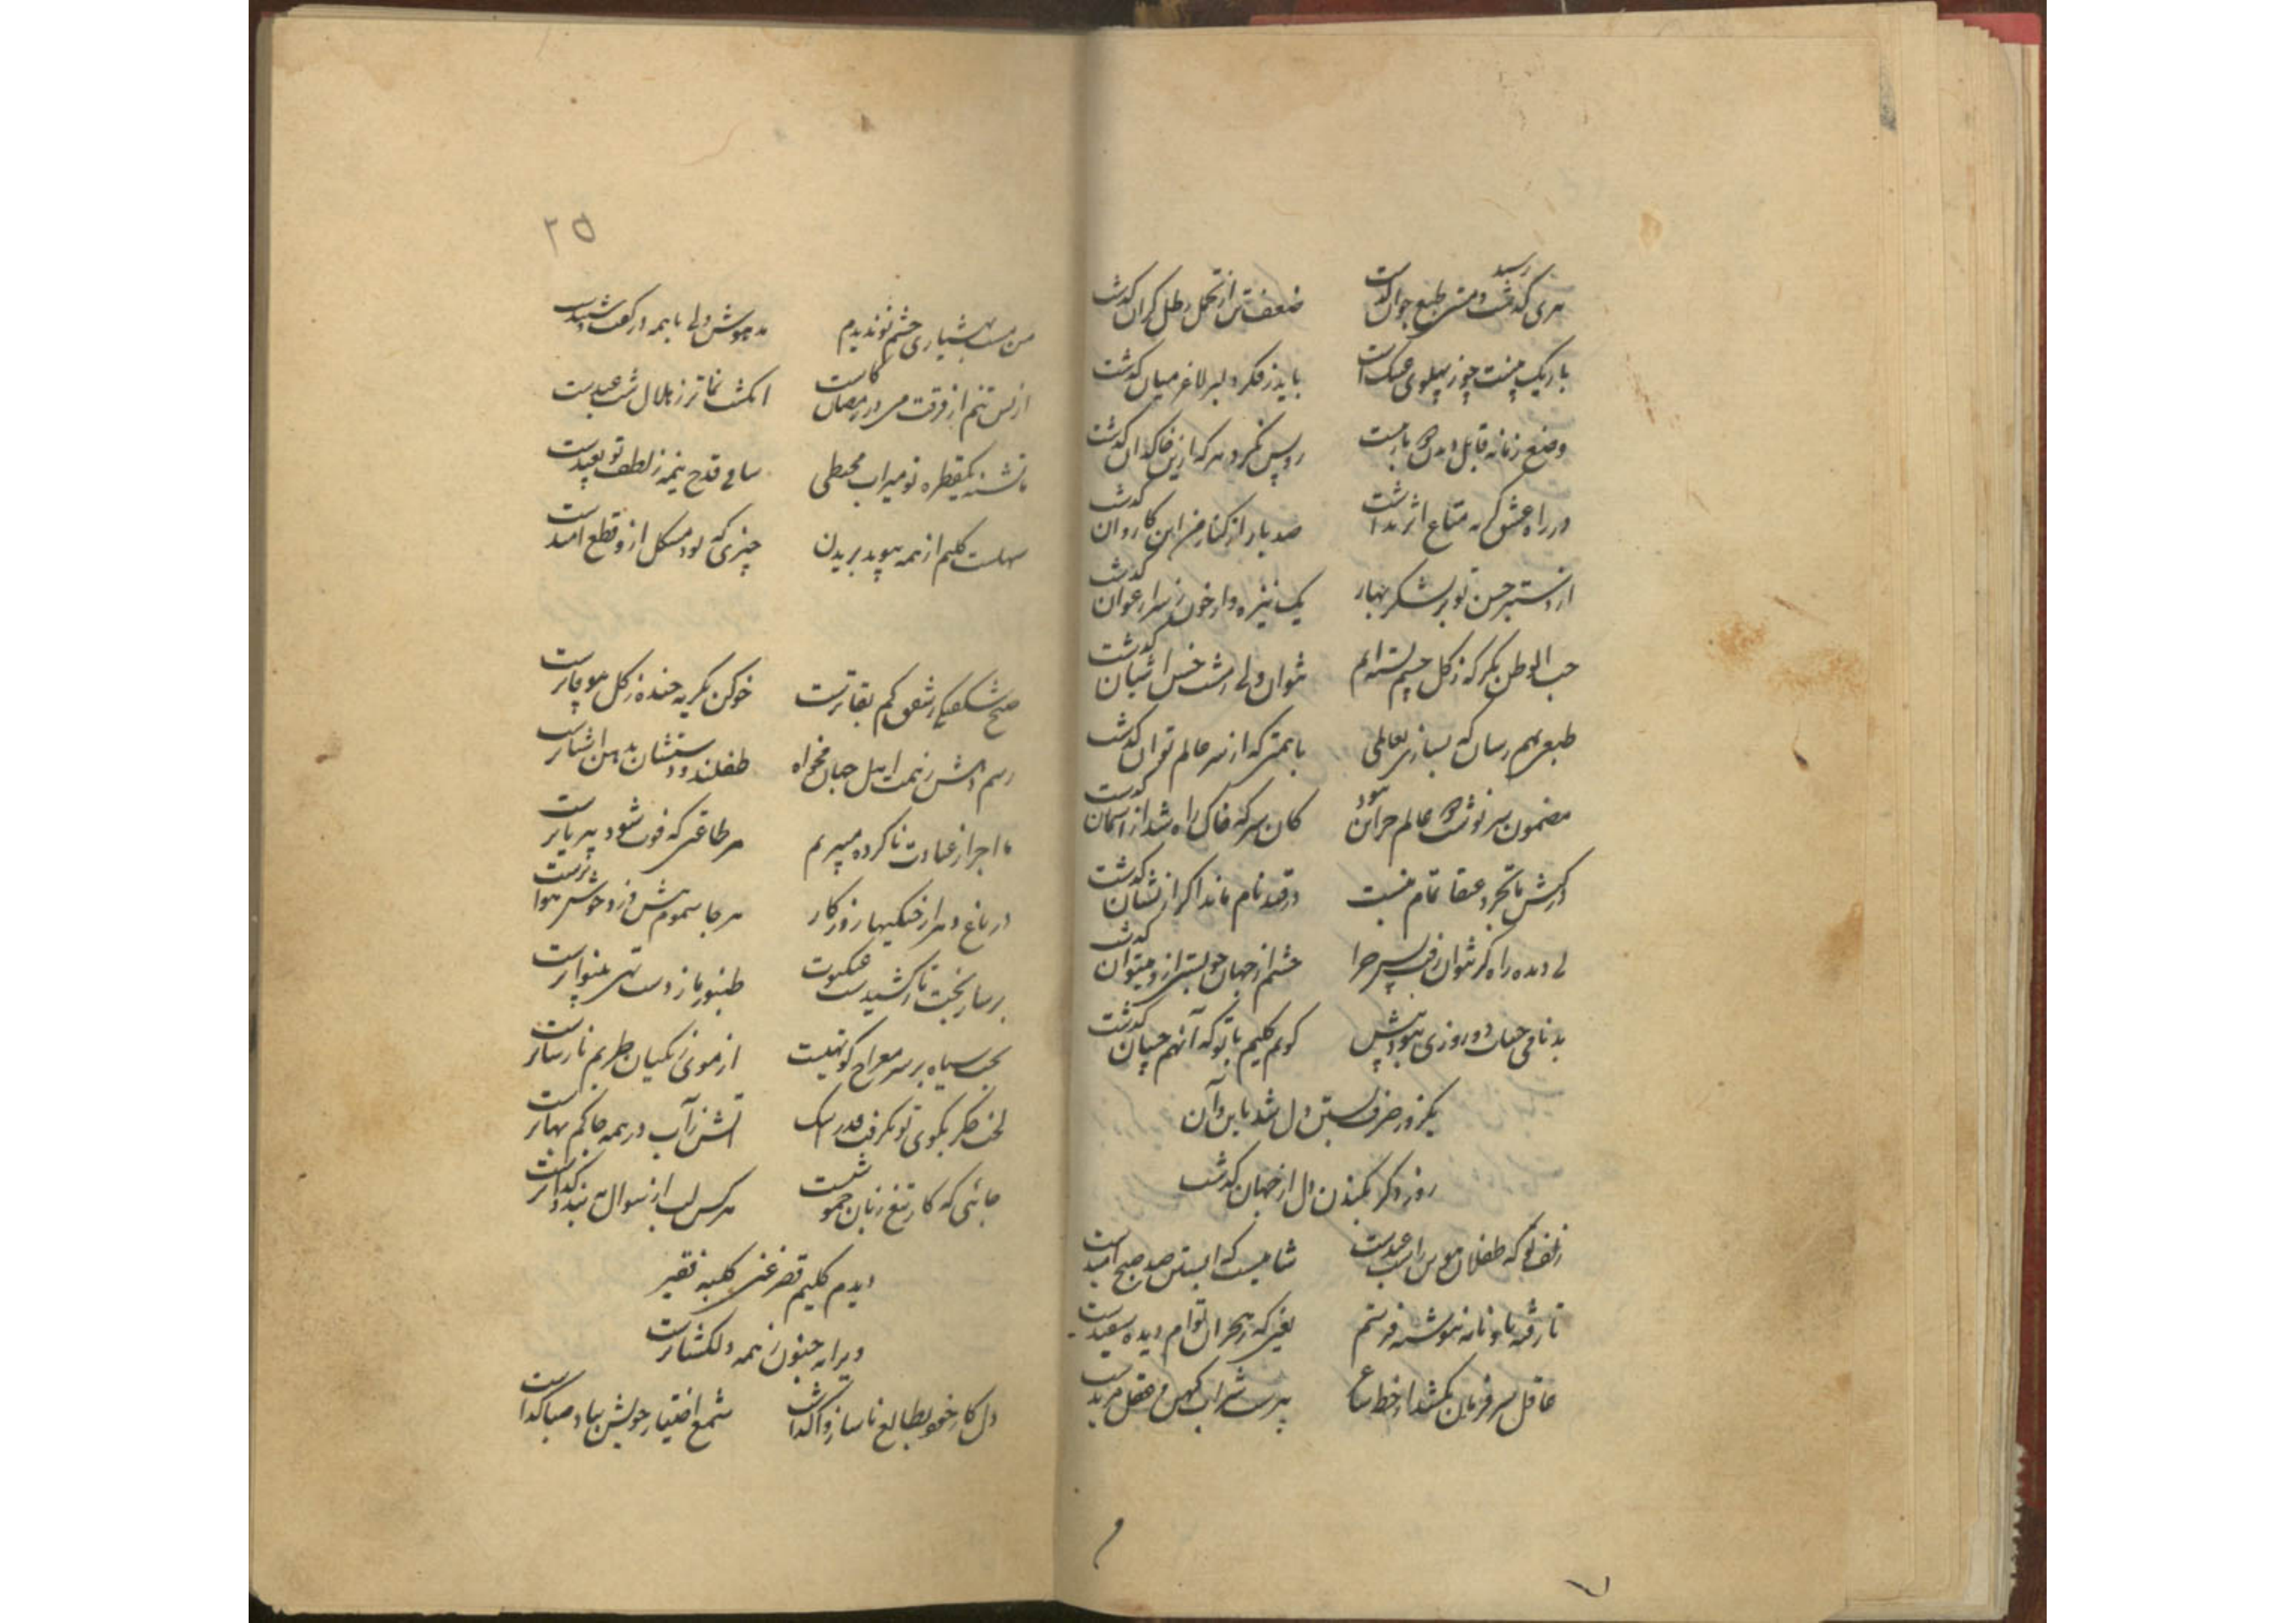 پیری رسید و مستی طبع جوان گذشت ضعف تن از تحمل رطل گران گذشت
باریک بینیت چو ز پهلوی عینک است باید ز فکر دلبر لاغر میان گذشت
وضع زمانه قابل دیدن دوباره نیست رو پس نکرد هر که ازین خاکدان گذشت
در راه عشق گریه متاع اثر نداشت صد بار از کنار من این کاروان گذشت
از دستبرد حسن تو بر لشکر بهار یک نیزه وار خون ز سر ارغوان گذشت
حب الوطن نگر که ز گل چشم بسته ایم نتوان ولی ز مشت خس آشیان گذشت
طبعی بهم رسان که بسازی بعالمی یا همتی که از سر عالم توان گذشت
مضمون سرنوشت دو عالم جز این نبود کان سر که خاک راه شد از آسمان گذشت
در کیش ما تجرد عنقا تمام نیست در قید نام ماند اگر از نشان گذشت
بی دیده راه گر نتوان رفت پس چرا چشم از جهان چو بستی ازو میتوان گذشت
بدنامی حیات دو روزی نبود بیش گویم کلیم با تو که آنهم چسان گذشت
یکروز صرف بستن دل شد باین و آن
روز دگر بکندن دل از جهان گذشت
زلف تو که طفلان هوس را شب عیدست شامیست که آبستن صد صبح امیدست
تا رفته بآن نامه ننوشته فرستم یعنی که ز هجران توام دیده سفیدست
عاقل سر فرمان نکشد از خط ساغر پیرست شراب کهن و عقل مریدست
۲۵
من مست بهشیاری چشم تو ندیدم مدهوش ولی با همه در گفت و شنیدست
از بس تنم از فرقت می در رمضان کاست انگشت نماتر ز هلال شب عیدست
ما تشنه یکقطره تو میراب محیطی ساقی قدح نیمه ز لطف تو بعیدست
سهلست کلیم از همه پیوند بریدن چیزی که بود مشکل ازو قطع امیدست
صبح شکفتگی ز شفق کم بقاترست خو کن بگریه خنده ز گل بیوفاترست
رسم دهش ز همت اهل جهان مخواه طفلند و دستشان بدهن آشناترست
ما اجر از عبادت ناکرده میبریم هر طاعتی که فوت شود بی ریاترست
در باغ دهر از خنکیهای روزگار هر جا سموم بیش وزد خوش هواترست
بر ساز بخت تار کشیدست عنکبوت طنبور ما ز دست تهی بینواترست
بخت سیاه بر سر معراج کوتهیست از موی زنگیان چه کنم نارساترست
لخت جگر بکوی تو نگرفت قدر اشک آتش ز آب در همه جا کم بهاترست
جائی که کار تیغ زبان خموشیست هر کس لب از سوال نبندد گداترست
دیدم کلیم قصر غنی کلبه فقیر
ویرانه جنون ز همه دلگشاترست
دل کار خود بطالع ناساز واگذاشت شمع اختیار خویش بباد صبا گذاشت